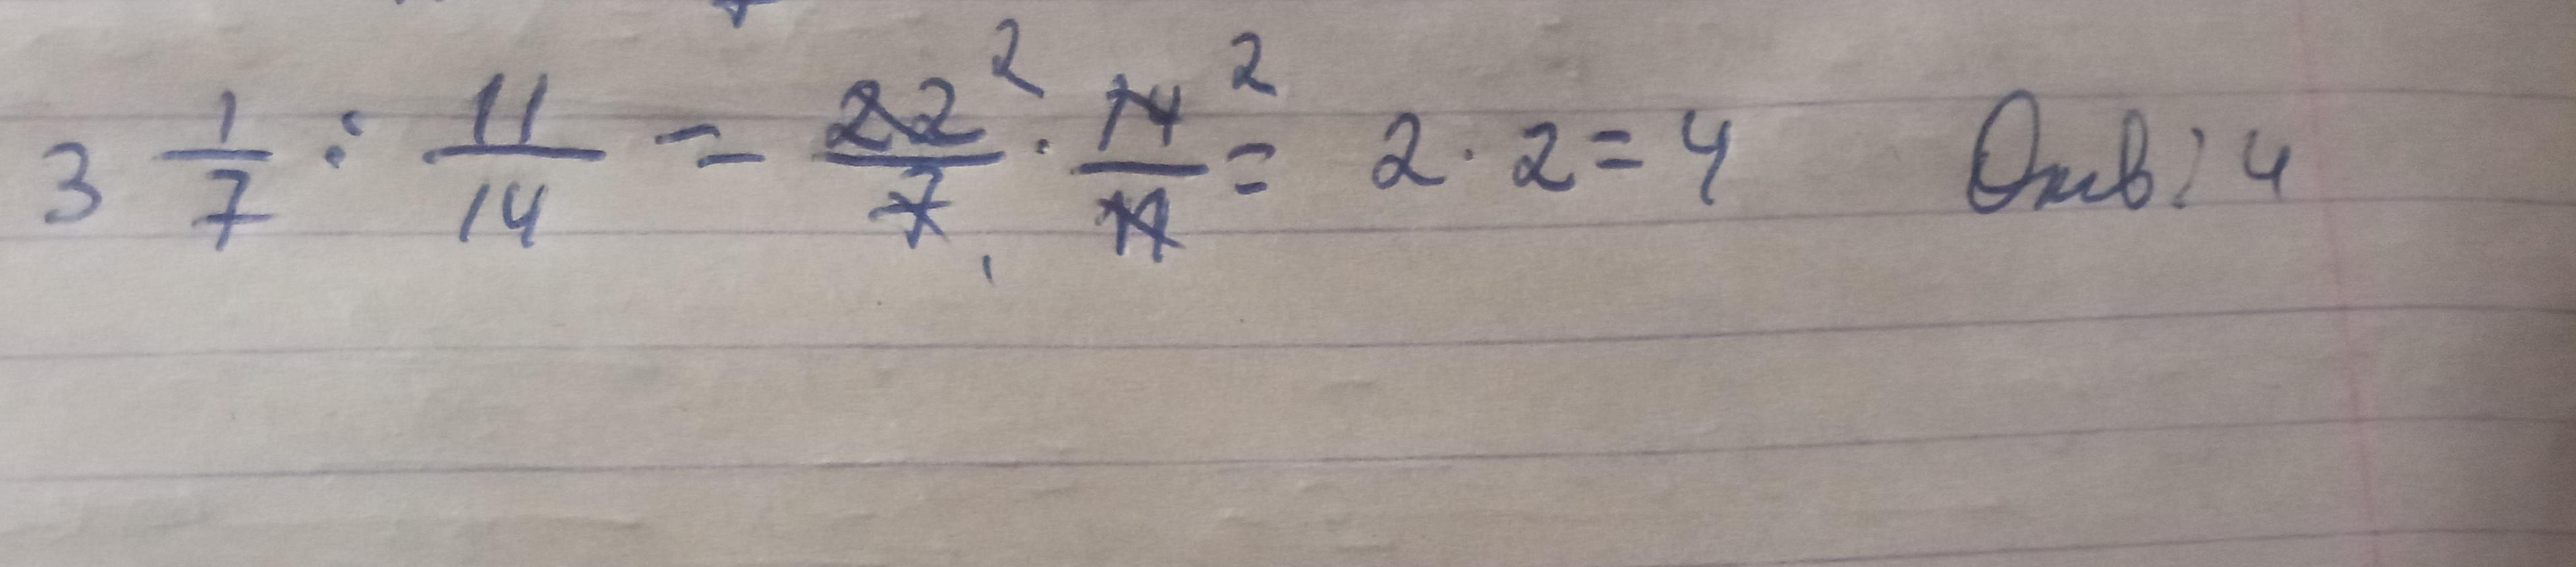 3 1/7 : 11/14 = 22/7 2 1 · 14/11 2 = 2 · 2 = 4 Отв: 4